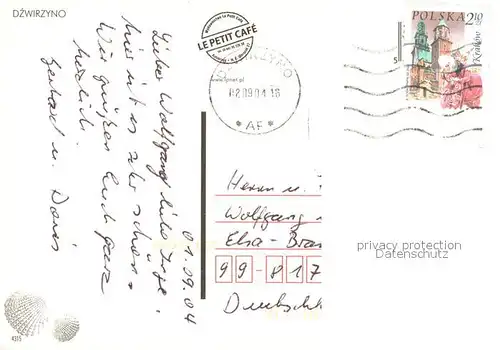 DŹWIRZYNO
LE PETIT CAFÉ
DŹWIRZYNO
02.09.04.-18
* AF *
POLSKA 2,10
Kraków
5
01.09.04
Lieber Wolfgang liebe Inge!
hier ist es sehr schön.
Wir grüßen Euch ganz
herzlich
Gerhard u. Doris
Herrn u. F
Wolfgang
Elsa-Bran
99-817
Deutschl
privacy protection
Datenschutz
4315